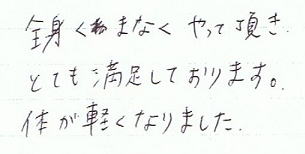 全身くまなくやって頂き
とても満足しております。
体が軽くなりました.